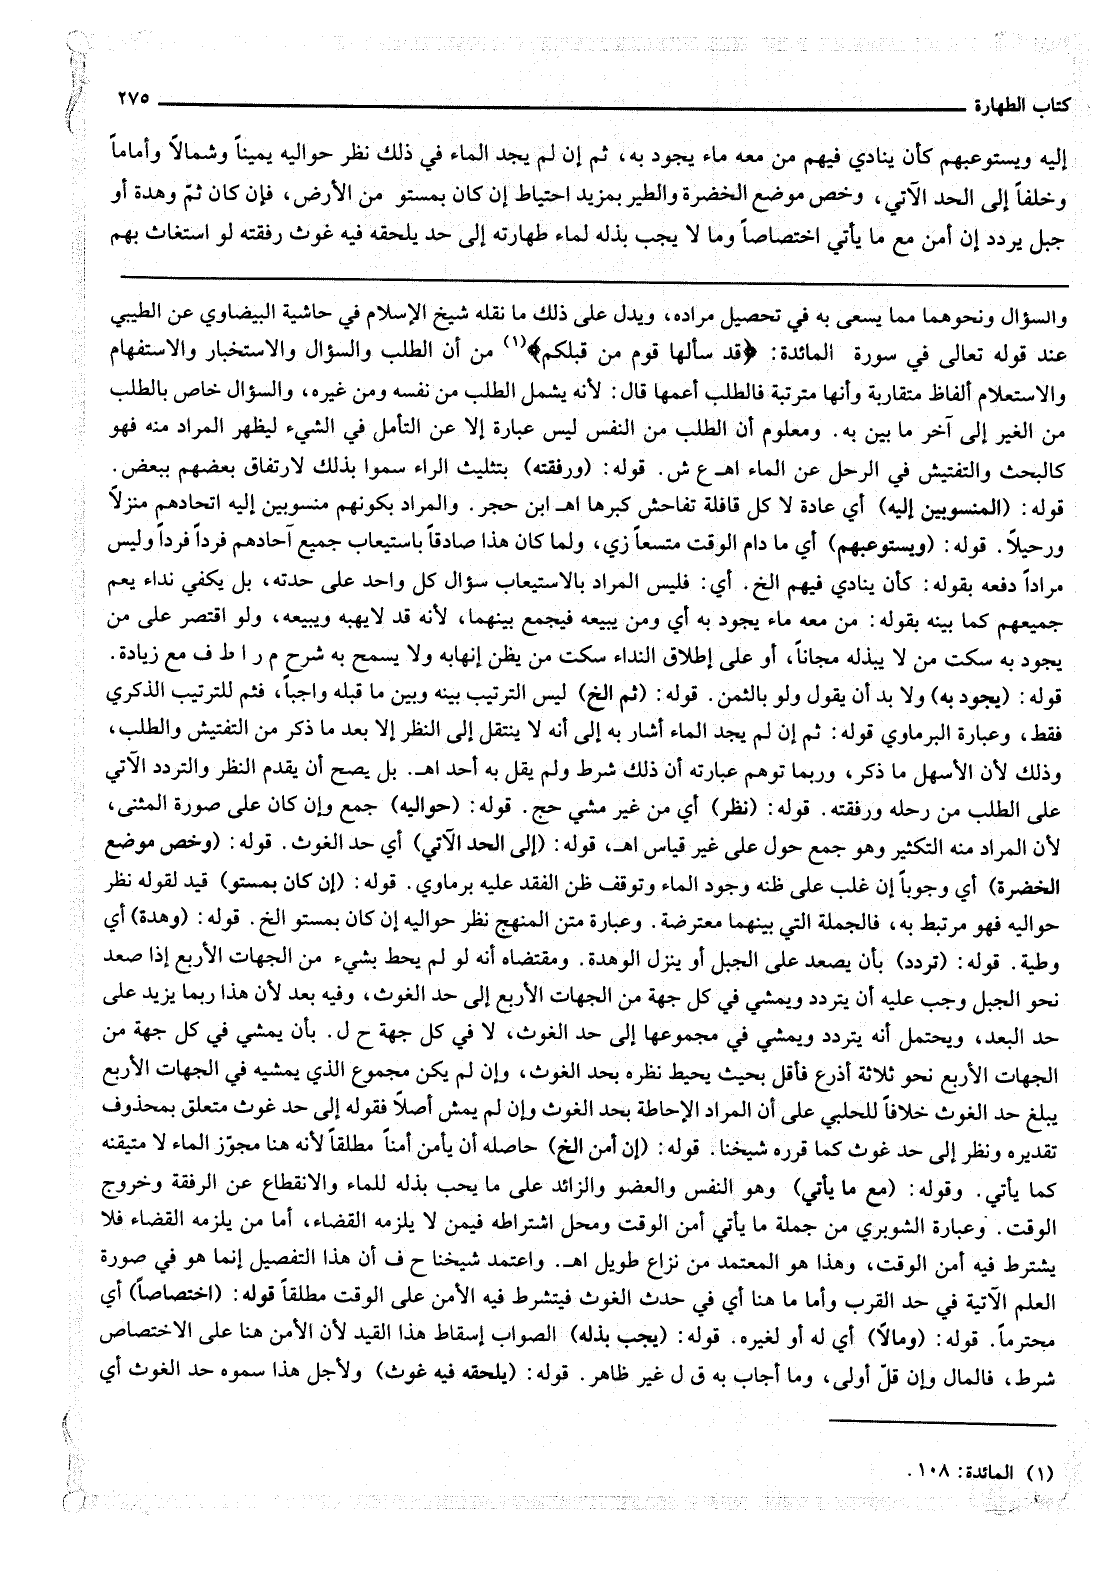 كتاب الطهارة ٢٧٥
إليه ويستوعبهم كأن ينادي فيهم من معه ماء يجود به، ثم إن لم يجد الماء في ذلك نظر حواليه يميناً وشمالاً وأماماً
وخلفاً إلى الحد الآتي، وخص موضع الخضرة والطير بمزيد احتياط إن كان بمستو من الأرض، فإن كان ثمّ وهدة أو
جبل يردد إن أمن مع ما يأتي اختصاصاً وما لا يجب بذله لماء طهارته إلى حد يلحقه فيه غوث رفقته لو استغاث بهم
والسؤال ونحوهما مما يسعى به في تحصيل مراده، ويدل على ذلك ما نقله شيخ الإسلام في حاشية البيضاوي عن الطيبي
عند قوله تعالى في سورة المائدة: ﴿قد سألها قوم من قبلكم﴾(١) من أن الطلب والسؤال والاستخبار والاستفهام
والاستعلام ألفاظ متقاربة وأنها مترتبة فالطلب أعمها قال: لأنه يشمل الطلب من نفسه ومن غيره، والسؤال خاص بالطلب
من الغير إلى آخر ما بين به. ومعلوم أن الطلب من النفس ليس عبارة إلا عن التأمل في الشيء ليظهر المراد منه فهو
كالبحث والتفتيش في الرحل عن الماء اهـ ع ش. قوله: (ورفقته) بتثليث الراء سموا بذلك لارتفاق بعضهم ببعض.
قوله: (المنسوبين إليه) أي عادة لا كل قافلة تفاحش كبرها اهـ ابن حجر. والمراد بكونهم منسوبين إليه اتحادهم منزلاً
ورحيلاً. قوله: (ويستوعبهم) أي ما دام الوقت متسعاً زي، ولما كان هذا صادقاً باستيعاب جميع آحادهم فرداً فرداً وليس
مراداً دفعه بقوله: كأن ينادي فيهم الخ. أي: فليس المراد بالاستيعاب سؤال كل واحد على حدته، بل يكفي نداء يعم
جميعهم كما بينه بقوله: من معه ماء يجود به أي ومن يبيعه فيجمع بينهما، لأنه قد لايهبه ويبيعه، ولو اقتصر على من
يجود به سكت من لا يبذله مجاناً، أو على إطلاق النداء سكت من يظن إنهابه ولا يسمح به شرح م ر ا ط ف مع زيادة.
قوله: (يجود به) ولا بد أن يقول ولو بالثمن. قوله: (ثم الخ) ليس الترتيب بينه وبين ما قبله واجباً، فثم للترتيب الذكري
فقط، وعبارة البرماوي قوله: ثم إن لم يجد الماء أشار به إلى أنه لا ينتقل إلى النظر إلا بعد ما ذكر من التفتيش والطلب،
وذلك لأن الأسهل ما ذكر، وربما توهم عبارته أن ذلك شرط ولم يقل به أحد اهـ. بل يصح أن يقدم النظر والتردد الآتي
على الطلب من رحله ورفقته. قوله: (نظر) أي من غير مشي حج. قوله: (حواليه) جمع وإن كان على صورة المثنى،
لأن المراد منه التكثير وهو جمع حول على غير قياس اهـ، قوله: (إلى الحد الآتي) أي حد الغوث. قوله: (وخص موضع
الخضرة) أي وجوباً إن غلب على ظنه وجود الماء وتوقف ظن الفقد عليه برماوي. قوله: (إن كان بمستو) قيد لقوله نظر
حواليه فهو مرتبط به، فالجملة التي بينهما معترضة. وعبارة متن المنهج نظر حواليه إن كان بمستو الخ. قوله: (وهدة) أي
وطية. قوله: (تردد) بأن يصعد على الجبل أو ينزل الوهدة. ومقتضاه أنه لو لم يحط بشيء من الجهات الأربع إذا صعد
نحو الجبل وجب عليه أن يتردد ويمشي في كل جهة من الجهات الأربع إلى حد الغوث، وفيه بعد لأن هذا ربما يزيد على
حد البعد، ويحتمل أنه يتردد ويمشي في مجموعها إلى حد الغوث، لا في كل جهة ح ل. بأن يمشي في كل جهة من
الجهات الأربع نحو ثلاثة أذرع فأقل بحيث يحيط نظره بحد الغوث، وإن لم يكن مجموع الذي يمشيه في الجهات الأربع
يبلغ حد الغوث خلافاً للحلبي على أن المراد الإحاطة بحد الغوث وإن لم يمش أصلاً فقوله إلى حد غوث متعلق بمحذوف
تقديره ونظر إلى حد غوث كما قرره شيخنا. قوله: (إن أمن الخ) حاصله أن يأمن أمناً مطلقاً لأنه هنا مجوّز الماء لا متيقنه
كما يأتي. وقوله: (مع ما يأتي) وهو النفس والعضو والزائد على ما يحب بذله للماء والانقطاع عن الرفقة وخروج
الوقت. وعبارة الشوبري من جملة ما يأتي أمن الوقت ومحل اشتراطه فيمن لا يلزمه القضاء، أما من يلزمه القضاء فلا
يشترط فيه أمن الوقت، وهذا هو المعتمد من نزاع طويل اهـ. واعتمد شيخنا ح ف أن هذا التفصيل إنما هو في صورة
العلم الآتية في حد القرب وأما ما هنا أي في حدث الغوث فيتشرط فيه الأمن على الوقت مطلقاً قوله: (اختصاصاً) أي
محترماً. قوله: (ومالاً) أي له أو لغيره. قوله: (يجب بذله) الصواب إسقاط هذا القيد لأن الأمن هنا على الاختصاص
شرط، فالمال وإن قلّ أولى، وما أجاب به ق ل غير ظاهر. قوله: (يلحقه فيه غوث) ولأجل هذا سموه حد الغوث أي
(١) المائدة: ١٠٨.